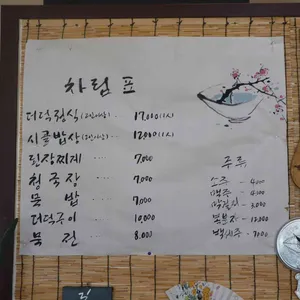 차림표
더덕정식(2인이상) 17000(1人)
시골밥상(2인이상) 12000(1人)
된장찌게 ···· 7,000
청국장 ···· 7,000
묵밥 ···· 7,000
더덕구이 ··· 10,000
묵전 ···· 8,000
주류
소주 - 4,000
맥주 - 4,000
막걸리 - 3,000
복분자 - 12,000
백세주 - 7,000